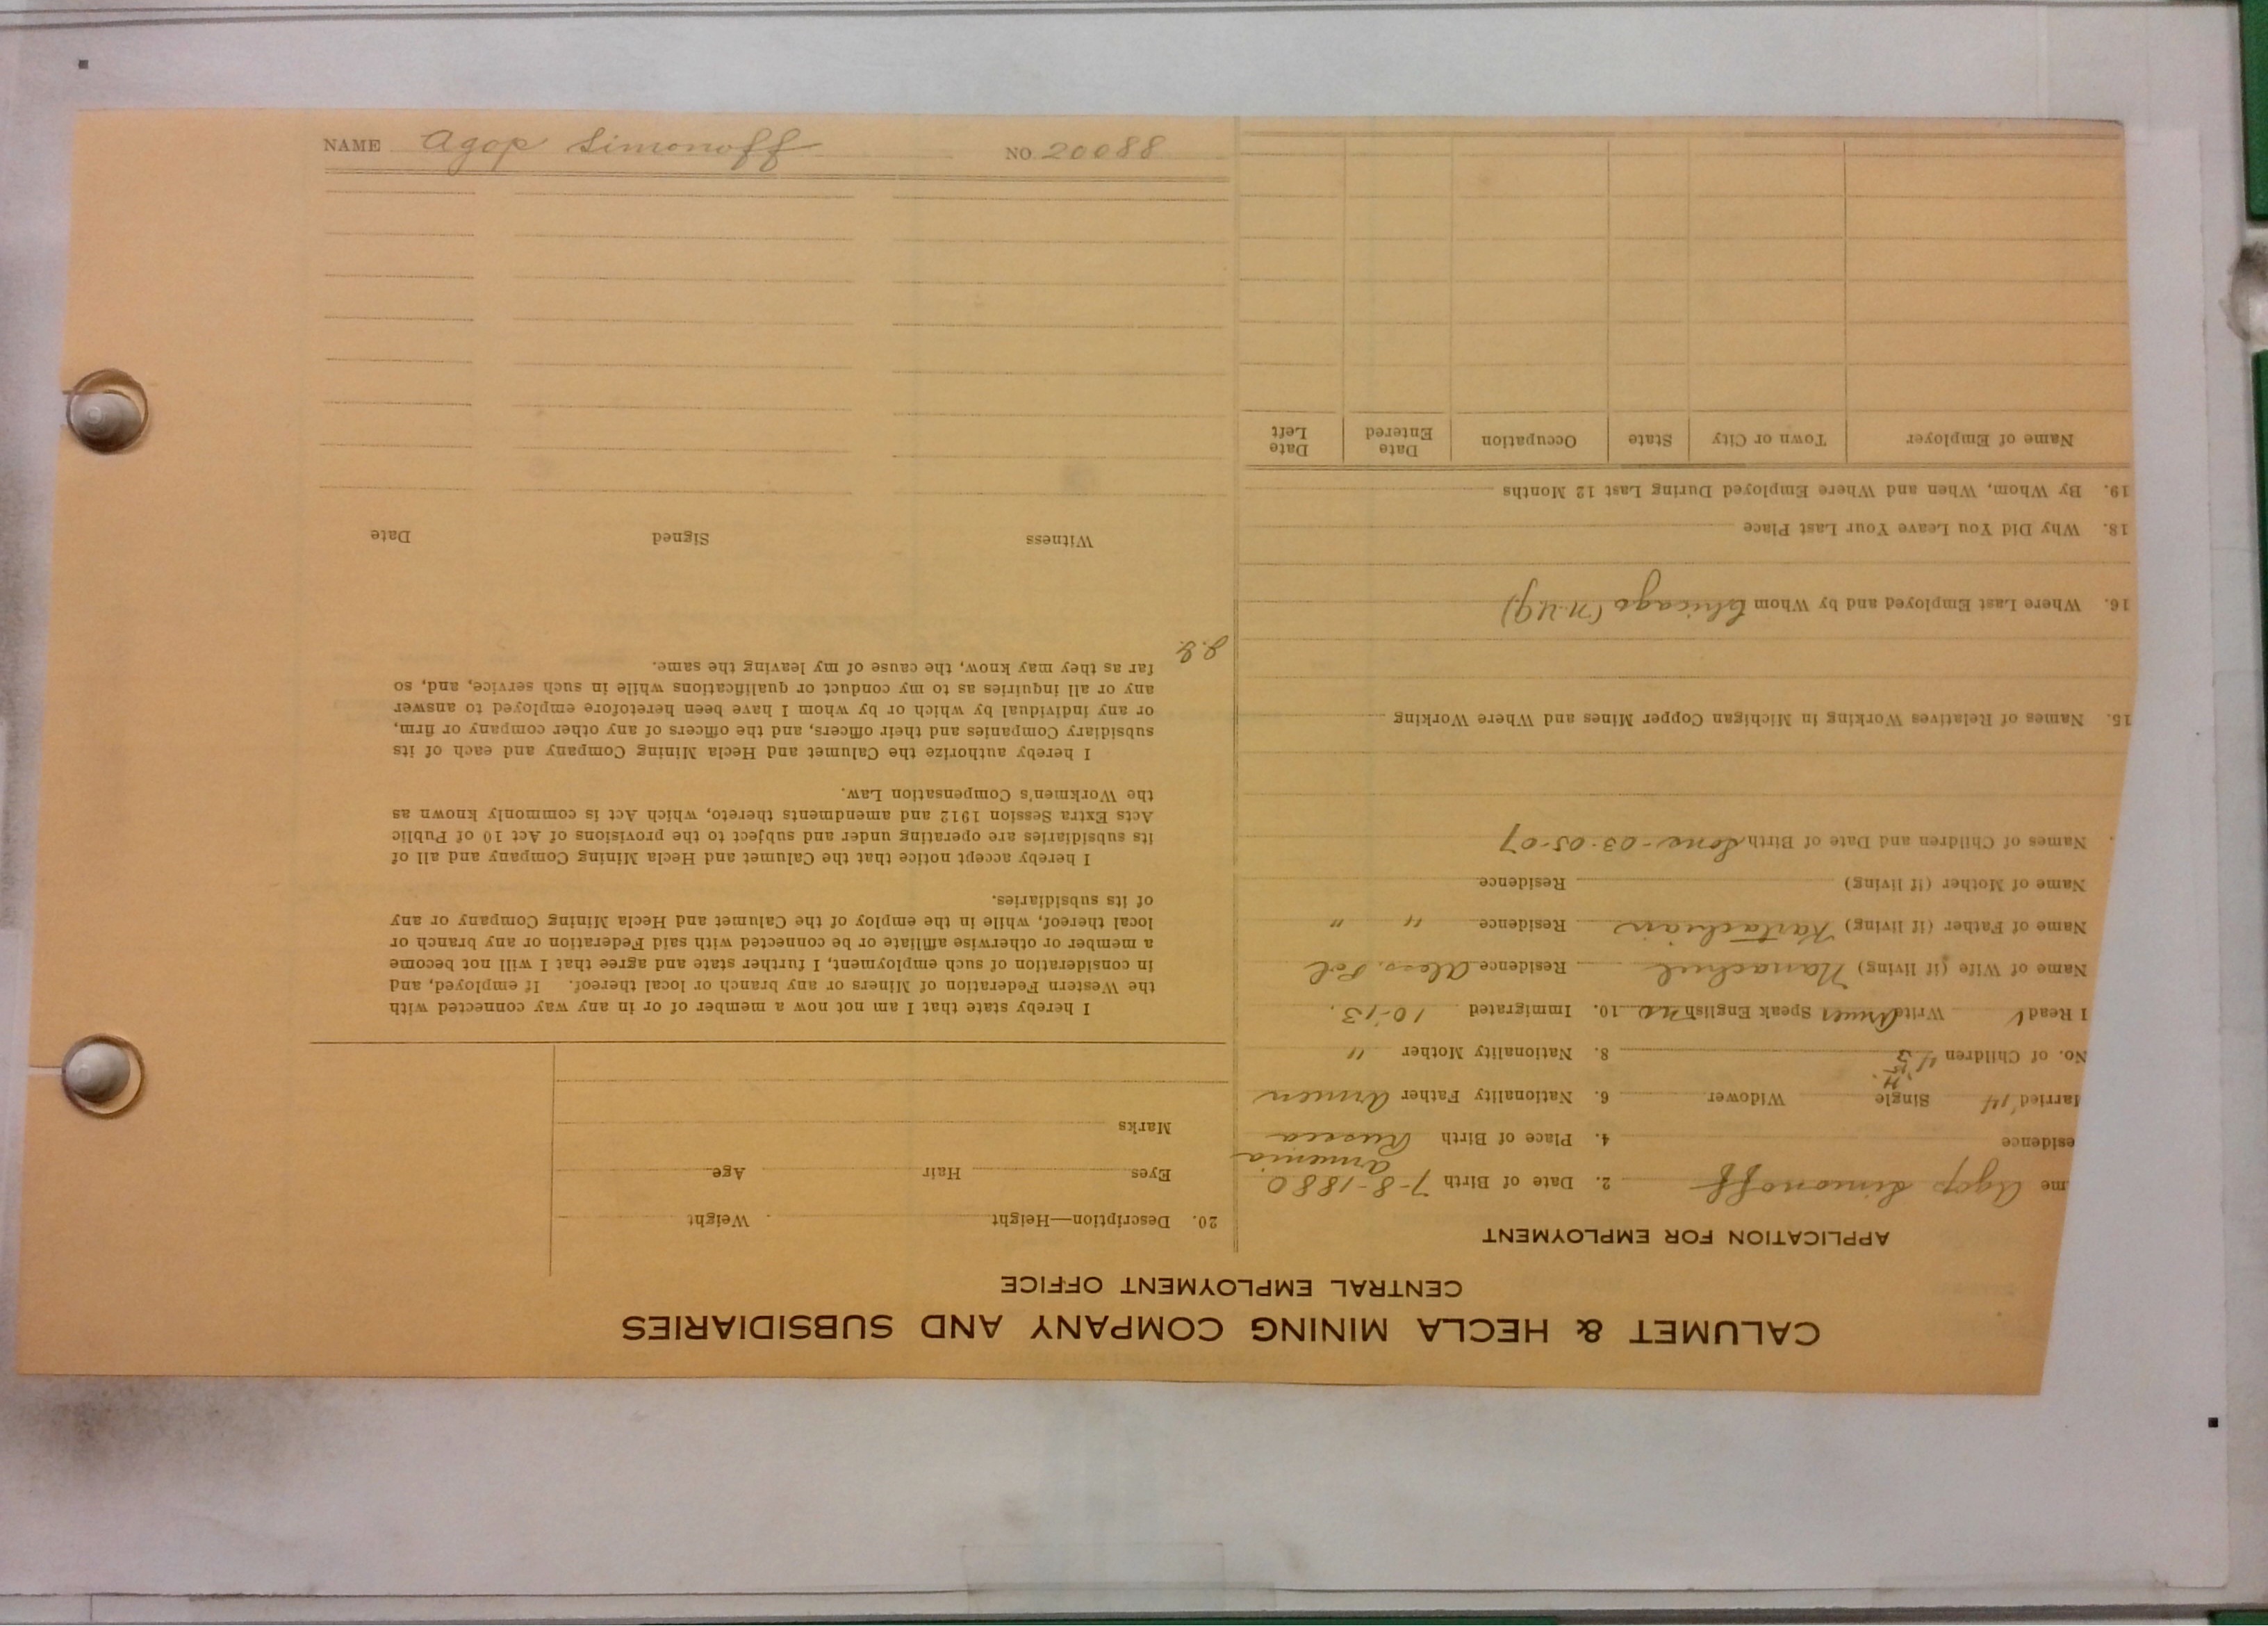 NAME Agop Simonoff NO 20088
CALUMET & HECLA MINING COMPANY AND SUBSIDIARIES
CENTRAL EMPLOYMENT OFFICE
APPLICATION FOR EMPLOYMENT
me Agop Simonoff 2. Date of Birth 7-8-1880
Armenia
esidence 4. Place of Birth Russia
arried Single Widower 6. Nationality Father Armen
No. of Children 8. Nationality Mother "
I Read Write Armen Speak English no 10. Immigrated 10-13.
Name of Wife (if living) Residence
Name of Father (if living) Residence " "
Name of Mother (if living) Residence
Names of Children and Date of Birth Sons-03-05-07
15. Names of Relatives Working in Michigan Copper Mines and Where Working
16. Where Last Employed and by Whom Chicago
18. Why Did You Leave Your Last Place
19. By Whom, When and Where Employed During Last 12 Months
Name of Employer Town or City State Occupation Date Entered Date Left
20. Description—Height Weight
Eyes Hair Age
Marks
I hereby state that I am not now a member of or in any way connected with
the Western Federation of Miners or any branch or local thereof. If employed, and
in consideration of such employment, I further state and agree that I will not become
a member or otherwise affiliate or be connected with said Federation or any branch or
local thereof, while in the employ of the Calumet and Hecla Mining Company or any
of its subsidiaries.
I hereby accept notice that the Calumet and Hecla Mining Company and all of
its subsidiaries are operating under and subject to the provisions of Act 10 of Public
Acts Extra Session 1912 and amendments thereto, which Act is commonly known as
the Workmen's Compensation Law.
I hereby authorize the Calumet and Hecla Mining Company and each of its
subsidiary Companies and their officers, and the officers of any other company or firm,
or any individual by which or by whom I have been heretofore employed to answer
any or all inquiries as to my conduct or qualifications while in such service, and, so
far as they may know, the cause of my leaving the same.
Witness Signed Date